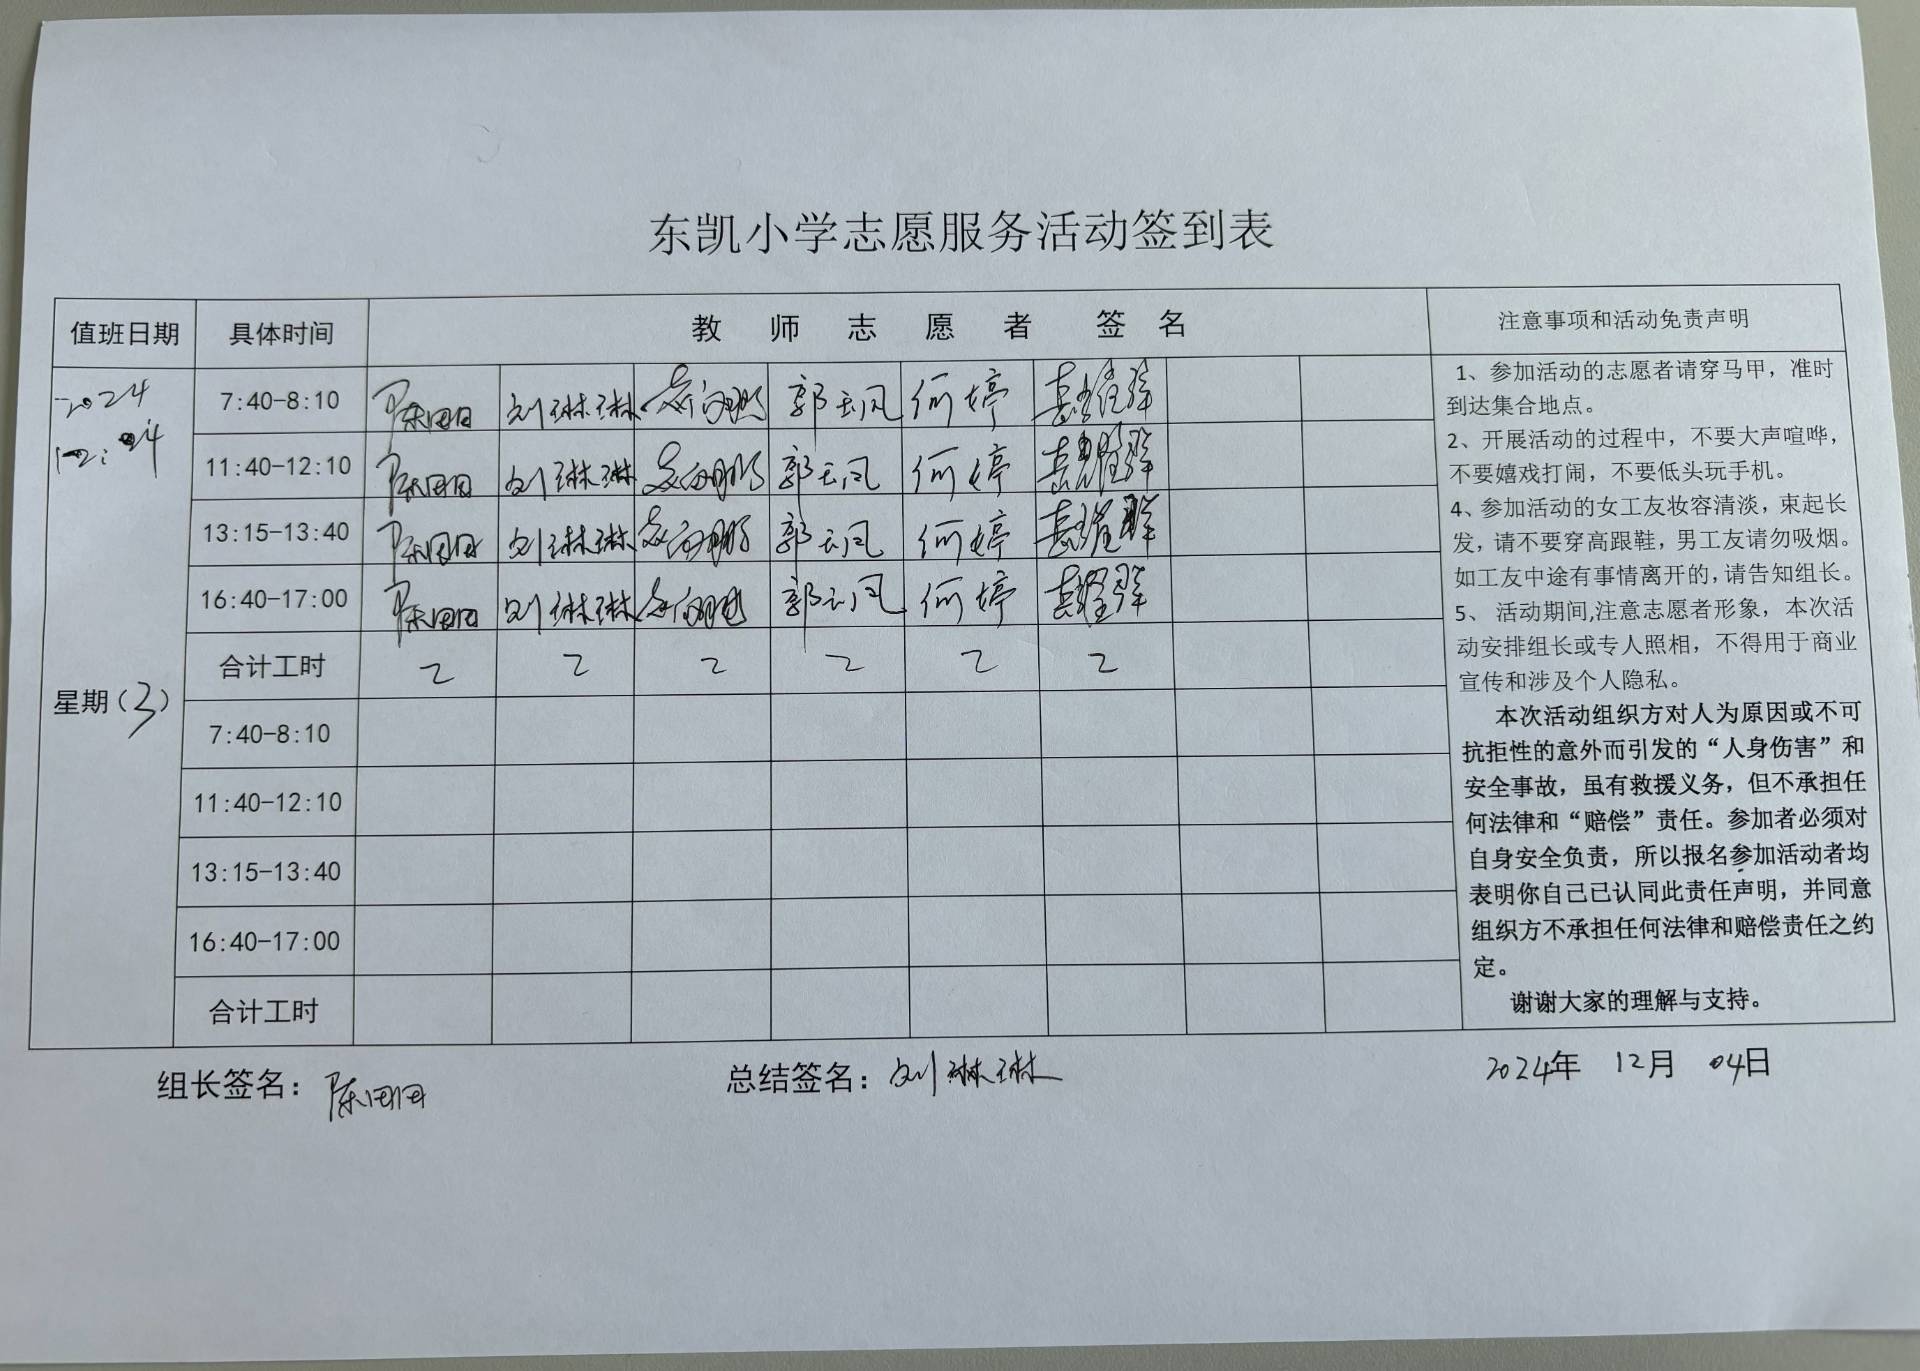 东凯小学志愿服务活动签到表
值班日期 具体时间 教师志愿者签名 注意事项和活动免责声明
2024
12.04
星期（3）
7:40-8:10 刘琳琳 郭云凤 何婷
11:40-12:10 刘琳琳 郭云凤 何婷
13:15-13:40 刘琳琳 郭云凤 何婷
16:40-17:00 刘琳琳 郭云凤 何婷
合计工时 2 2 2 2 2 2
7:40-8:10
11:40-12:10
13:15-13:40
16:40-17:00
合计工时
1、参加活动的志愿者请穿马甲，准时
到达集合地点。
2、开展活动的过程中，不要大声喧哗，
不要嬉戏打闹，不要低头玩手机。
4、参加活动的女工友妆容清淡，束起长
发，请不要穿高跟鞋，男工友请勿吸烟。
如工友中途有事情离开的，请告知组长。
5、 活动期间,注意志愿者形象，本次活
动安排组长或专人照相，不得用于商业
宣传和涉及个人隐私。
本次活动组织方对人为原因或不可
抗拒性的意外而引发的“人身伤害”和
安全事故，虽有救援义务，但不承担任
何法律和“赔偿”责任。参加者必须对
自身安全负责，所以报名参加活动者均
表明你自己已认同此责任声明，并同意
组织方不承担任何法律和赔偿责任之约
定。
谢谢大家的理解与支持。
组长签名： 总结签名：刘琳琳 2024年 12月 04日